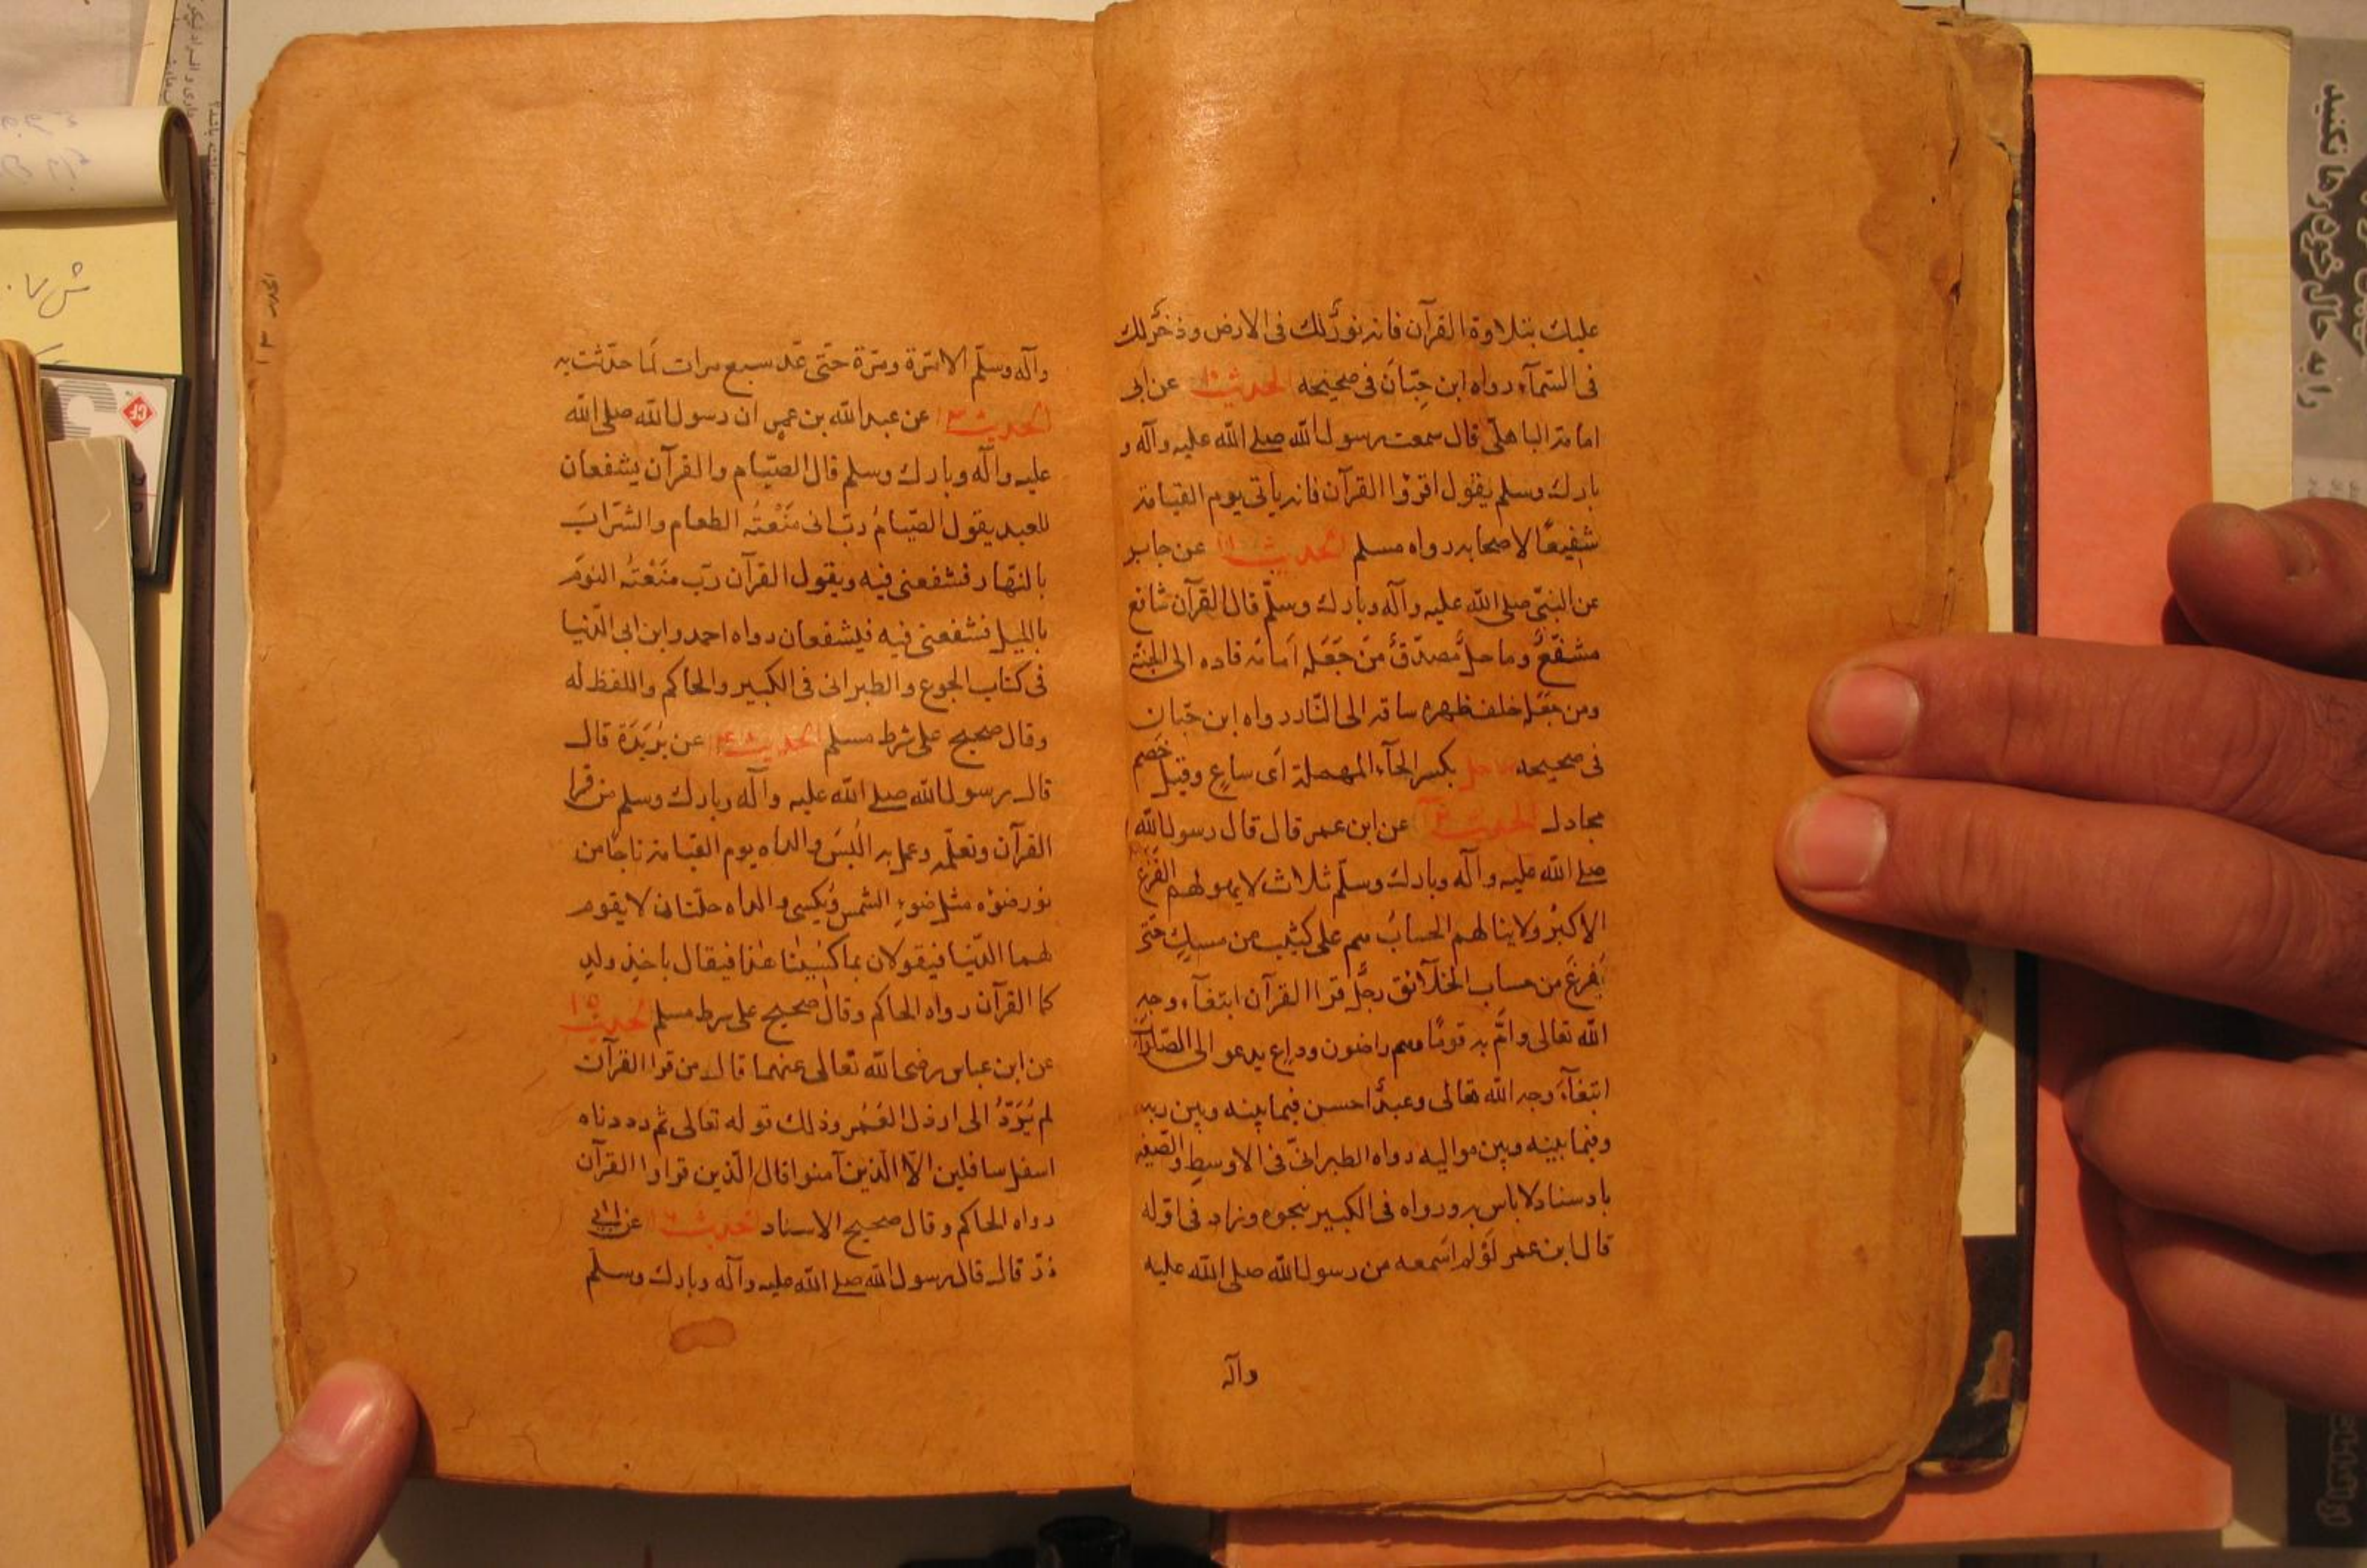 عليك بتلاوة القرآن فانه نورٌ لك فى الارض وذخرٌ لك
فى السّمآء رواه ابن حِبّان فى صحيحه الحديث ١٠ عن ابى
امامة الباهلّى قال سمعت رسول الله صلى الله عليه وآله و
بارك وسلم يقول اقرؤا القرآن فانه ياتى يوم القيامة
شفيعًا لاصحابه رواه مسلم الحديث ١١ عن جابر
عن النبىّ صلى الله عليه وآله وبارك وسلّم قال القرآن شافع
مشفّعٌ وماحلٌ مُصدّقٌ مَن جَعَله اَمامَه قاده الى الجنّة
ومن جَعَله خلف ظهره ساقه الى النّار رواه ابن حبّان
فى صحيحه ماحل بكسر الحآء المهملة اَى ساعٍ وقيل خَصم
مجادل الحديث ١٢ عن ابن عمر قال قال رسول الله
صلى الله عليه وآله وبارك وسلّم ثلاث لا يهولهم الفَزَع
الاكبرُ ولا ينالهم الحسابُ هم على كثيب من مسكٍ حتّى
يُفرغَ من حساب الخلآئق رجلٌ قرا القرآن ابتغآء وجه
الله تعالى وامَّ به قومًا وهم راضون وداعٍ يدعو الى الصّلوات
ابتغآءَ وجه الله تعالى وعبدٌ احسن فيما بينه وبين ربه
وفيما بينه وبين مواليه رواه الطبرانىّ فى الاوسط والصّغير
باسناد لا باس به ورواه فى الكبير بنحوه وزاد فى اوّله
قال ابن عمر لَوْ لم اسمعه من رسول الله صلى الله عليه
وآله
وآله وسلّم الا مرّة ومرّة حتّى عدّ سبع مرات لَما حدّثت به
الحديث ١٣ عن عبد الله بن عمر ان رسول الله صلى الله
عليه وآله وبارك وسلم قال الصّيام والقرآن يشفعان
للعبد يقول الصّيامُ ربّ انى مَنَعْتُه الطعام والشّرابَ
بالنهّار فشفعنى فيه ويقول القرآن ربّ مَنَعْتُه النومَ
بالليل فشفعنى فيه فيشفعان رواه احمد وابن ابى الدّنيا
فى كتاب الجوع والطبرانى فى الكبير والحاكم واللفظ له
وقال صحيح على شرط مسلم الحديث ١٤ عن بُرَيَدَة قال
قال رسول الله صلى الله عليه وآله وبارك وسلم من قرا
القرآن وتعلّمه وعمل به اُلبِسَ والداه يوم القيامة تاجًا من
نور ضوْه مثل ضوءِ الشمس ويُكسى والداه حلّتان لا يقوم
لهما الدّنيا فيقولان بما كُسِينا هٰذا فيقال باخذِ ولدِ
كما القرآن رواه الحاكم وقال صحيح على شرط مسلم الحديث ١٥
عن ابن عباس رضى الله تعالى عنهما قال من قرا القرآن
لم يُرَدَّ الى ارذل العُمُر وذلك قوله تعالى ثم رددناه
اسفل سافلين الّا الّذين آمنوا قال الّذين قراوا القرآن
رواه الحاكم وقال صحيح الاسناد الحديث ١٦ عن ابى
ذرّ قال قال رسول الله صلى الله عليه وآله وبارك وسلّم
را به حال خود رها نكنيد